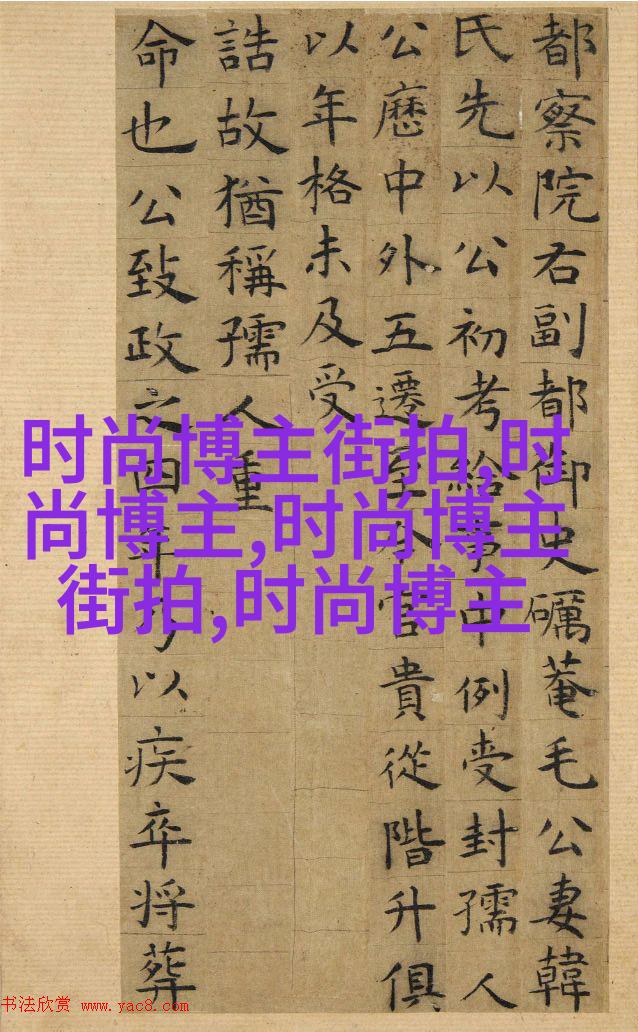 都察院右副都御史礪菴毛公妻韓
氏先以公初考給事中例受封孺人
公歷中外五遷至今官貴從階升俱
以年格未及受
誥故猶稱孺人重
命也公致政之四年乃以疾卒将葬
时尚博主街拍,时
尚博主,时尚博主
街拍,时尚博主
书法欣赏 www.yac8.com